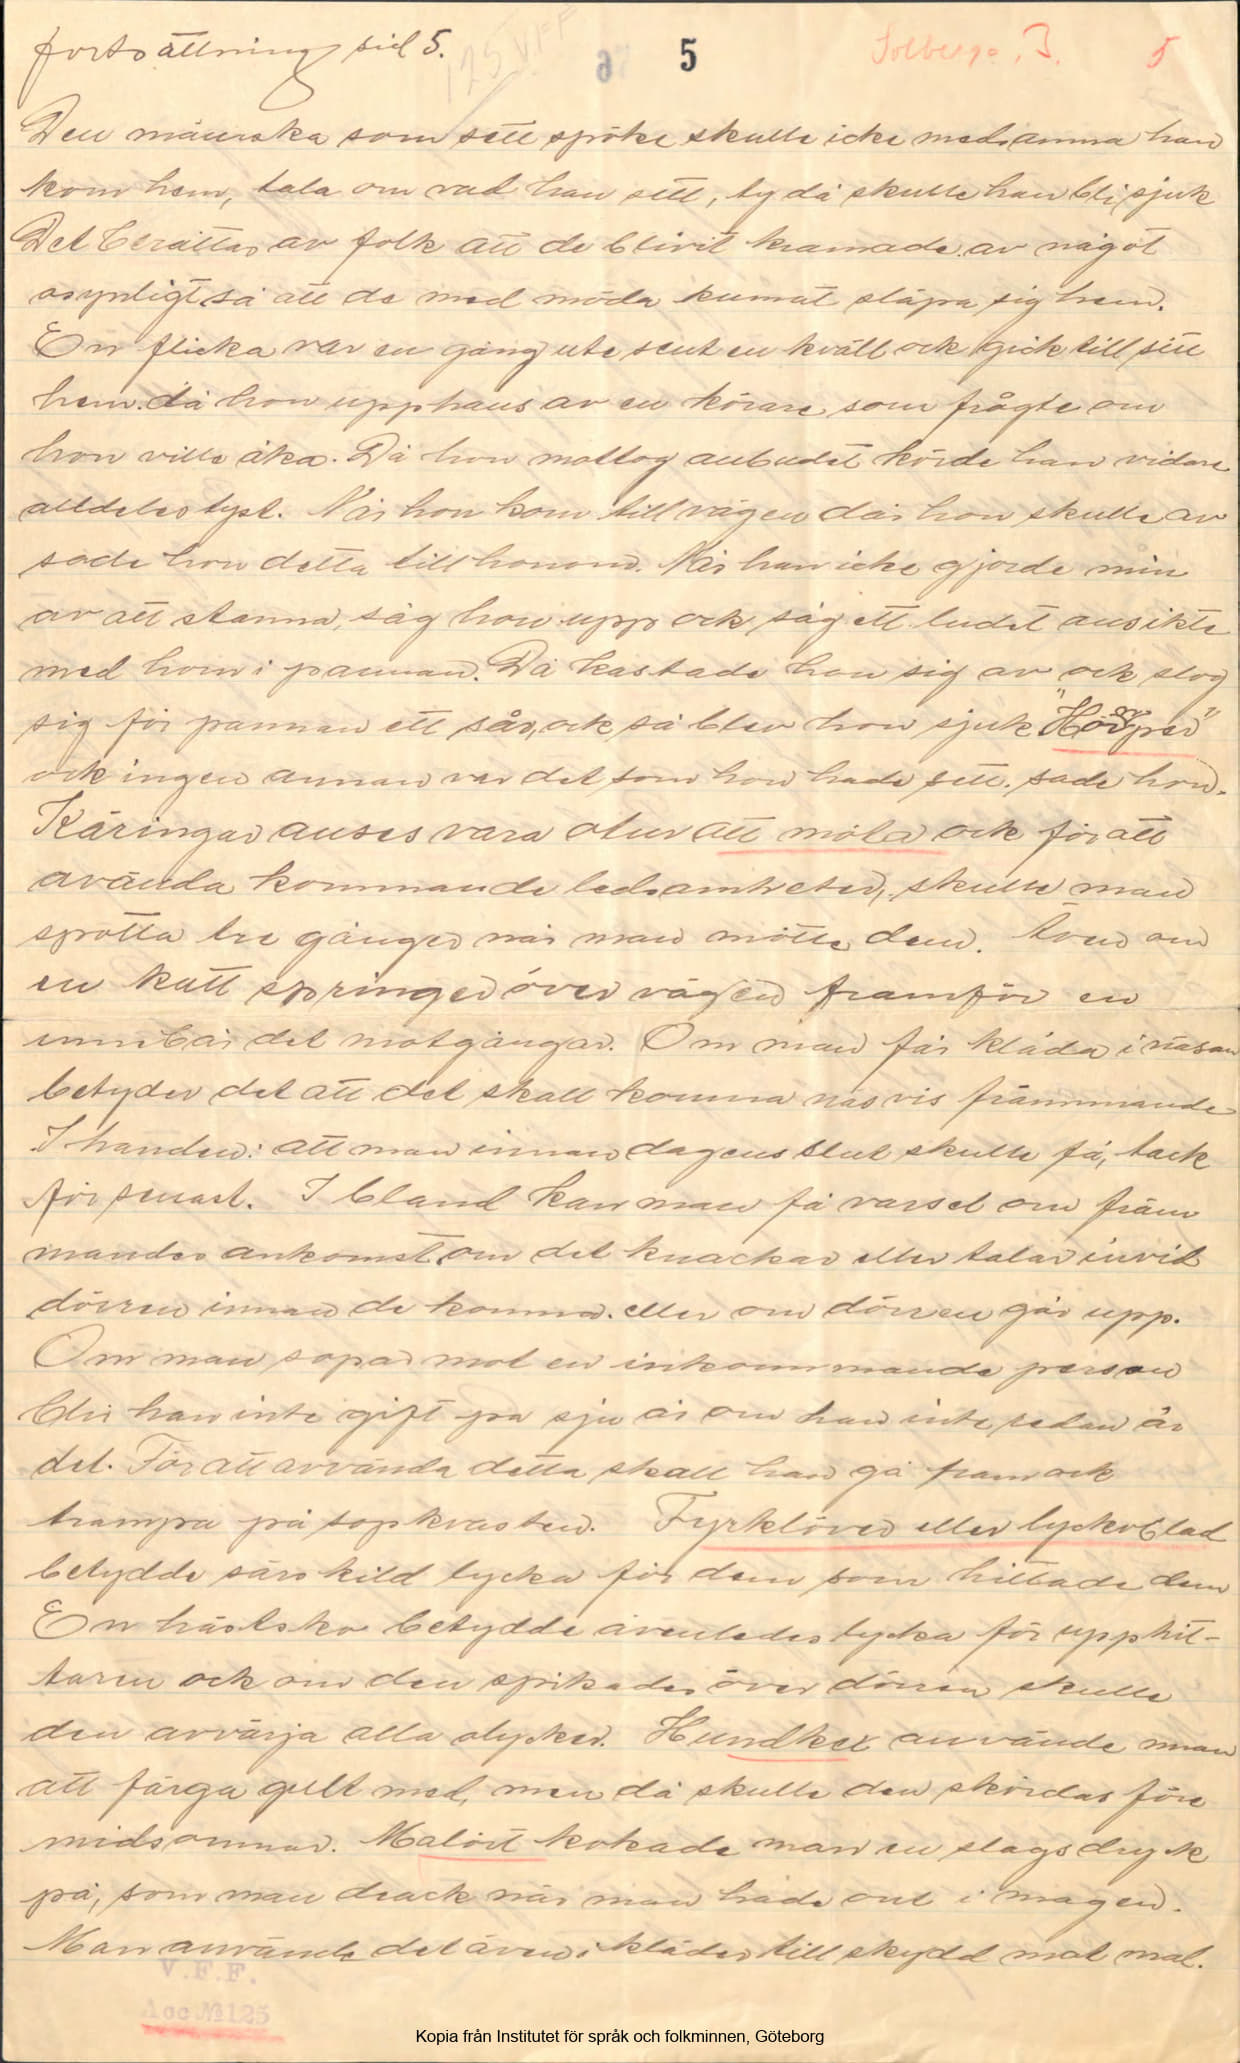 fortsättning sid 5.
125 VFF
5
Solberga. J. 5
Den mänska som sett spöke skulle icke medsamma han
kom hem, tala om vad han sett, ty då skulle han bli sjuk
Det berättas av folk att de blivit kramade av något
osynligt så att de med möda kunnat släpa sig hem.
En flicka var en gång ute sent en kväll ock gick till sitt
hem. då hon upphans av en körare som frågte om
hon ville åka. Då hon mottog anbudet körde han vidare
alldeles tyst. När hon kom till vägen där hon skulle av
sade hon detta till honom. När han icke gjorde min
av att stanna, såg hon upp ock såg ett ludet ansikte
med horn i pannan. Då kastade hon sig av ock slog
sig för pannan ett sår, ock så blev hon sjuk
ock ingen annan var det som hon hade sett. sade hon.
Käringar anses vara otur att möta ock för att
avända kommande ledsamheter, skulle man
spotta tre gånger när man mötte dem. Även om
en katt springer över vägen framför en
innebär det motgångar. Om man får klåda i näsan
betyder det att det skall komma näsvis främmande
I handen: att man innan dagens slut skulle få, tack
för senast. I bland kan man få varsel om främ
mandes ankomst om det knackar eller talar invid
dörren innan de komma. eller om dörren går upp.
Om man sopar mot en inkommande person
blir han inte gift på sju år om han inte redan är
det. För att avvända detta skall han gå fram ock
trampa på sopkvasten. Fyrklöver eller lyckoblad
betydde särskild lycka för dem som hittade dem
En hästsko betydde äveledes lycka för upphit-
taren ock om den spikades över dörren skulle
den avvärja alla olyckor. Hundkex använde man
att färga gult med, men då skulle den skördas före
midsommar. Malört kokade man en slags dryck
på, som man drack när man hade ont i magen.
Man använde det även i kläder till skydd mot mal.
V.F.F.
Acc № 125
Kopia från Institutet för språk och folkminnen, Göteborg